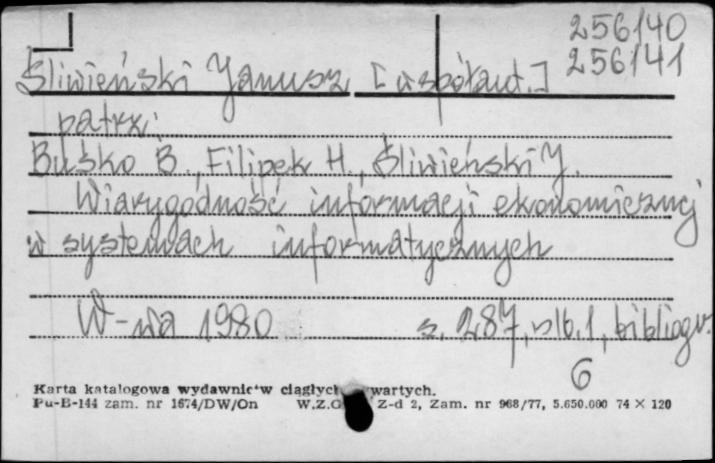 256140
256141
Śliwieński Janusz [współaut.]
patrz:
Buśko B., Filipek H., Śliwieński J.
Wiarygodność informacji ekonomicznej
w systemach informatycznych
W-wa 1980 s. 287, nlb. 1, bibliogr.
6
Karta katalogowa wydawnictw ciągłych wartych.
Pu-B-144 zam. nr 1674/DW/On W.Z.G. Z-d 2, Zam. nr 968/77, 5.650.000 74 × 120